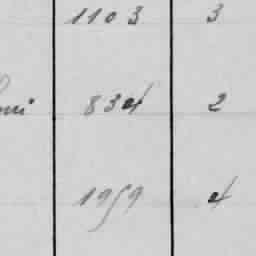 1103 3
834 2
1959 4